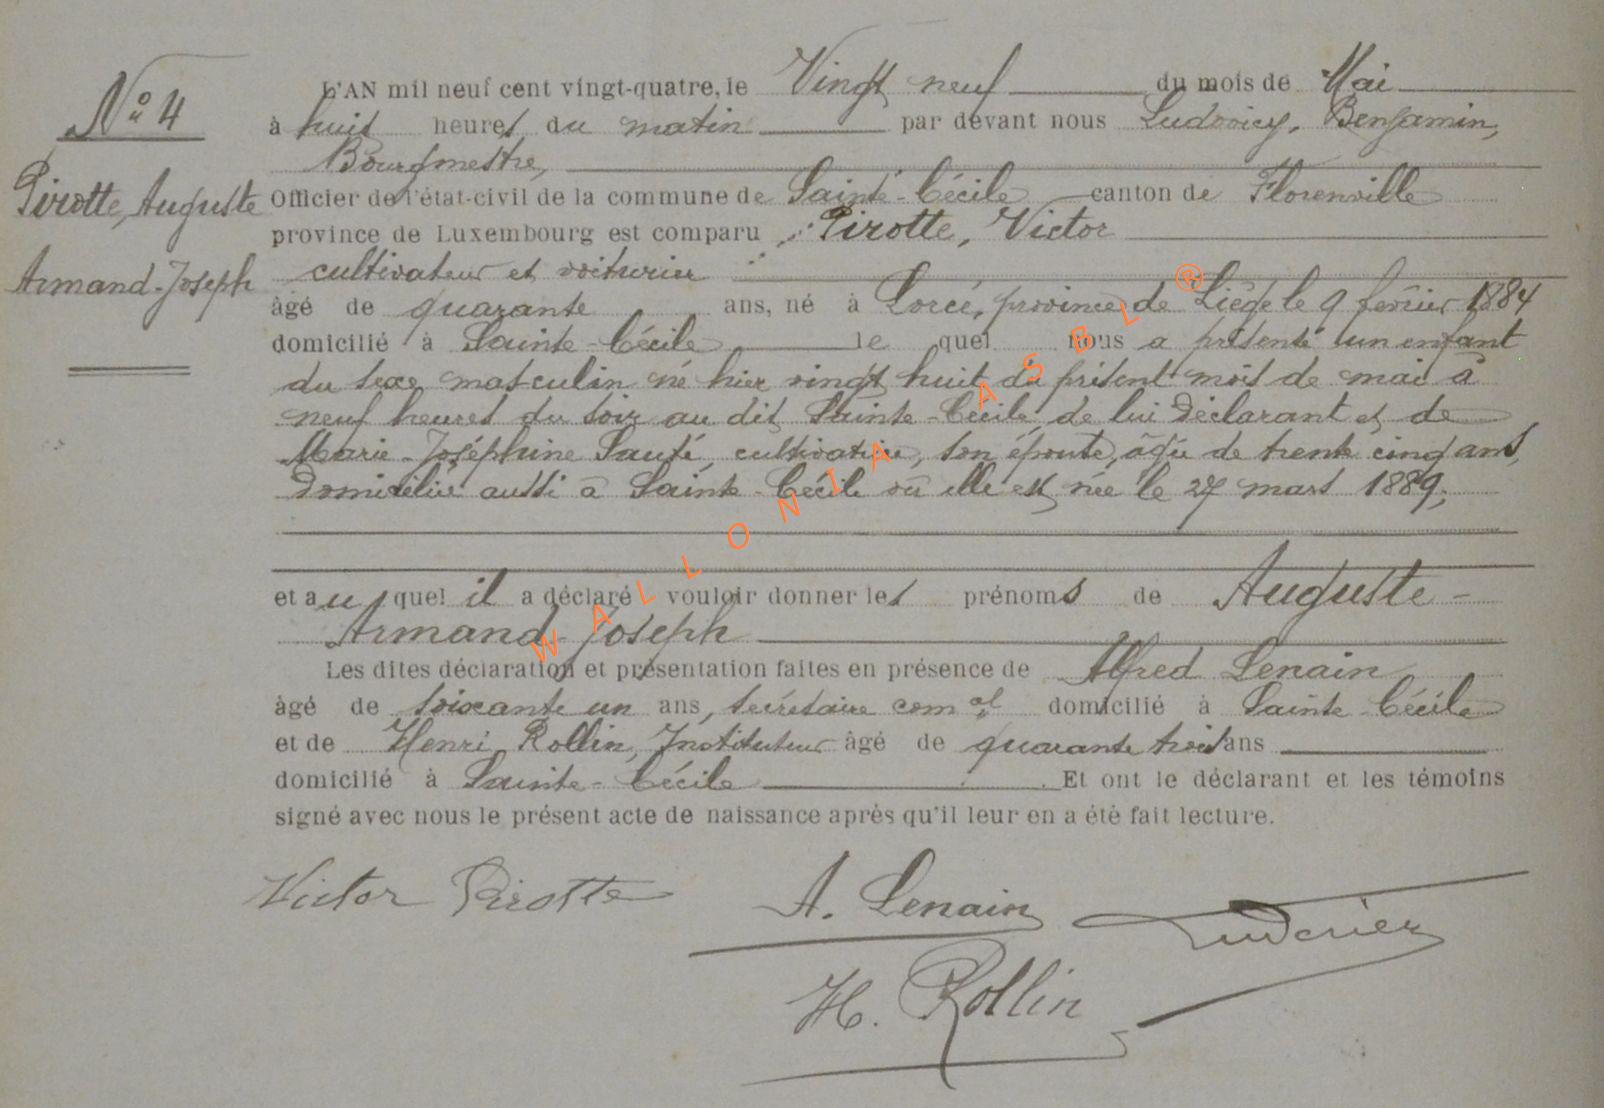 N° 4
Pirotte, Auguste
Armand-Joseph
L'AN mil neuf cent vingt-quatre, le Vingt neuf du mois de Mai
à huit heures du matin par devant nous Ludovicy, Benjamin,
Bourgmestre,
Officier de l'état-civil de la commune de Sainte-Cécile canton de Florenville
province de Luxembourg est comparu Pirotte, Victor
cultivateur et voiturier
âgé de quarante ans, né à Lorcé, province de Liège le 9 février 1884
domicilié à Sainte-Cécile le quel nous a présenté un enfant
du sexe masculin né hier vingt huit du présent mois de mai à
neuf heures du soir au dit Sainte-Cécile de lui déclarant et de
Marie-Joséphine Sauté, cultivatrice, son épouse, âgée de trente cinq ans,
domiciliée aussi à Sainte-Cécile où elle est née le 27 mars 1889;
et au quel il a déclaré vouloir donner les prénoms de Auguste-
Armand-Joseph
Les dites déclaration et présentation faites en présence de Alfred Lenain
âgé de soixante un ans, secrétaire comal domicilié à Sainte-Cécile
et de Henri Rollin, Instituteur âgé de quarante trois ans
domicilié à Sainte-Cécile Et ont le déclarant et les témoins
signé avec nous le présent acte de naissance après qu'il leur en a été fait lecture.
Victor Pirotte A. Lenain
H. Rollin
WALLONIA ASBL ®